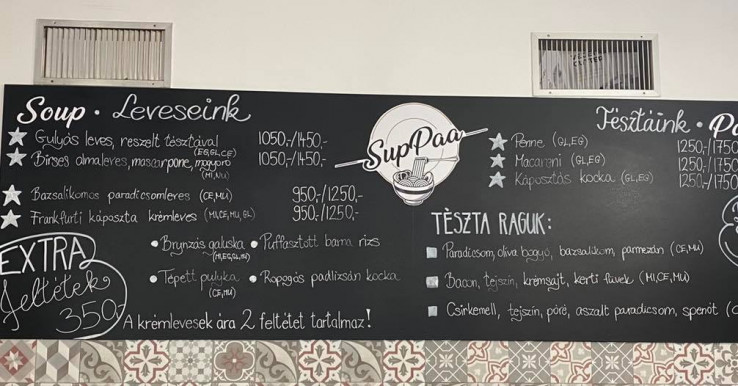 Soup • Leveseink
Gulyás leves, reszelt tésztával 1050,-/1450,-
(EG,GL,CE)
Birses almaleves, mascarpone, mogyoró 1050,-/1450,-
(MI,NU)
Bazsalikomos paradicsomleves (CE,MU) 950,-/1250,-
Frankfurti káposzta krémleves (MI,CE,MU,GL) 950,-/1250,-
EXTRA
feltétek
350,-
• Brynzás galuska • Puffasztott barna rizs
• Tépett pulyka • Ropogós padlizsán kocka
(CE,MU)
A krémlevesek ára 2 feltétet tartalmaz!
SupPaa
Tésztáink •
Penne (GL,EG) 1250,-/1750
Macaroni (GL,EG) 1250,-/1750
Káposztás kocka (GL,EG) 1250,-/1750
TÈSZTA RAGUK:
Paradicsom, oliva bogyó, bazsalikom, parmezán (CE,MU)
Bacon, tejszín, krémsajt, kerti füvek (MI,CE,MU)
Csirkemell, tejszín, póré, aszalt paradicsom, spenót